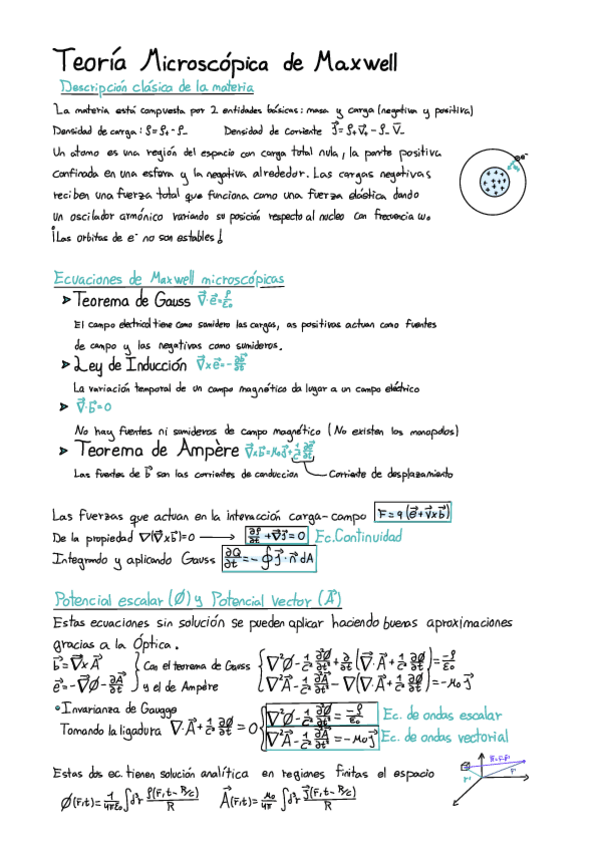 Teoría Microscópica de Maxwell
Descripción clásica de la materia
La materia está compuesta por 2 entidades básicas: masa y carga (negativa y positiva)
Densidad de carga: ρ=ρ₊-ρ₋ Densidad de corriente J⃗=ρ₊V⃗₊-ρ₋V⃗₋
Un átomo es una región del espacio con carga total nula, la parte positiva
confinada en una esfera y la negativa alrededor. Las cargas negativas
reciben una fuerza total que funciona como una fuerza elástica dando
un oscilador armónico variando su posición respecto al nucleo con frecuencia ω₀
¡Las orbitas de e⁻ no son estables!
e⁻
Ecuaciones de Maxwell microscópicas
➤ Teorema de Gauss ∇⃗·e⃗=ρ/ε₀
El campo electrical tiene como sumidero las cargas, as positivas actuan como fuentes
de campo y las negativas como sumideros.
➤ Ley de Inducción ∇⃗×e⃗=-∂b⃗/∂t
La variación temporal de un campo magnético da lugar a un campo eléctrico
➤ ∇⃗·b⃗=0
No hay fuentes ni sumideros de campo magnético (No existen los monopolos)
➤ Teorema de Ampère ∇⃗×b⃗=μ₀j⃗+1/c² ∂e⃗/∂t
Las fuentes de b⃗ son las corrientes de conduccion Corriente de desplazamiento
Las fuerzas que actuan en la interacción carga-campo F=q(e⃗+v⃗×b⃗)
De la propiedad ∇(∇⃗×b⃗)=0 → ∂ρ/∂t+∇⃗j⃗=0 Ec.Continuidad
Integrando y aplicando Gauss ∂Q/∂t=-∮j⃗·n⃗dA
Potencial escalar (Ø) y Potencial vector (A⃗)
Estas ecuaciones sin solución se pueden aplicar haciendo buenas aproximaciones
gracias a la Óptica.
b⃗=∇⃗×A⃗ Con el teorema de Gauss ∇²Ø-1/c² ∂²Ø/∂t²+∂/∂t(∇⃗·A⃗+1/c² ∂Ø/∂t)=-ρ/ε₀
e⃗=-∇⃗Ø-∂A⃗/∂t y el de Ampère ∇²A⃗-1/c² ∂²A⃗/∂t²-∇(∇⃗·A⃗+1/c² ∂Ø/∂t)=-μ₀j⃗
•Invarianza de Gaugge ∇²Ø-1/c² ∂²Ø/∂t²=-ρ/ε₀ Ec. de ondas escalar
Tomando la ligadura ∇⃗·A⃗+1/c² ∂Ø/∂t=0 ∇²A⃗-1/c² ∂²A⃗/∂t²=-μ₀j⃗ Ec. de ondas vectorial
Estas dos ec. tienen solución analítica en regiones finitas el espacio
Ø(r,t)=1/4πε₀ ∫d³r ρ(r,t-R/c)/R A⃗(r,t)=μ₀/4π ∫d³r j⃗(r,t-R/c)/R